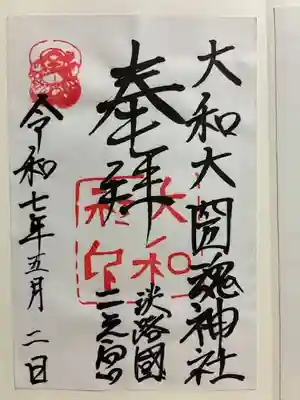 大和大圀魂神社
奉拝
淡路國
二之宮
大和
社印
令和七年五月二日